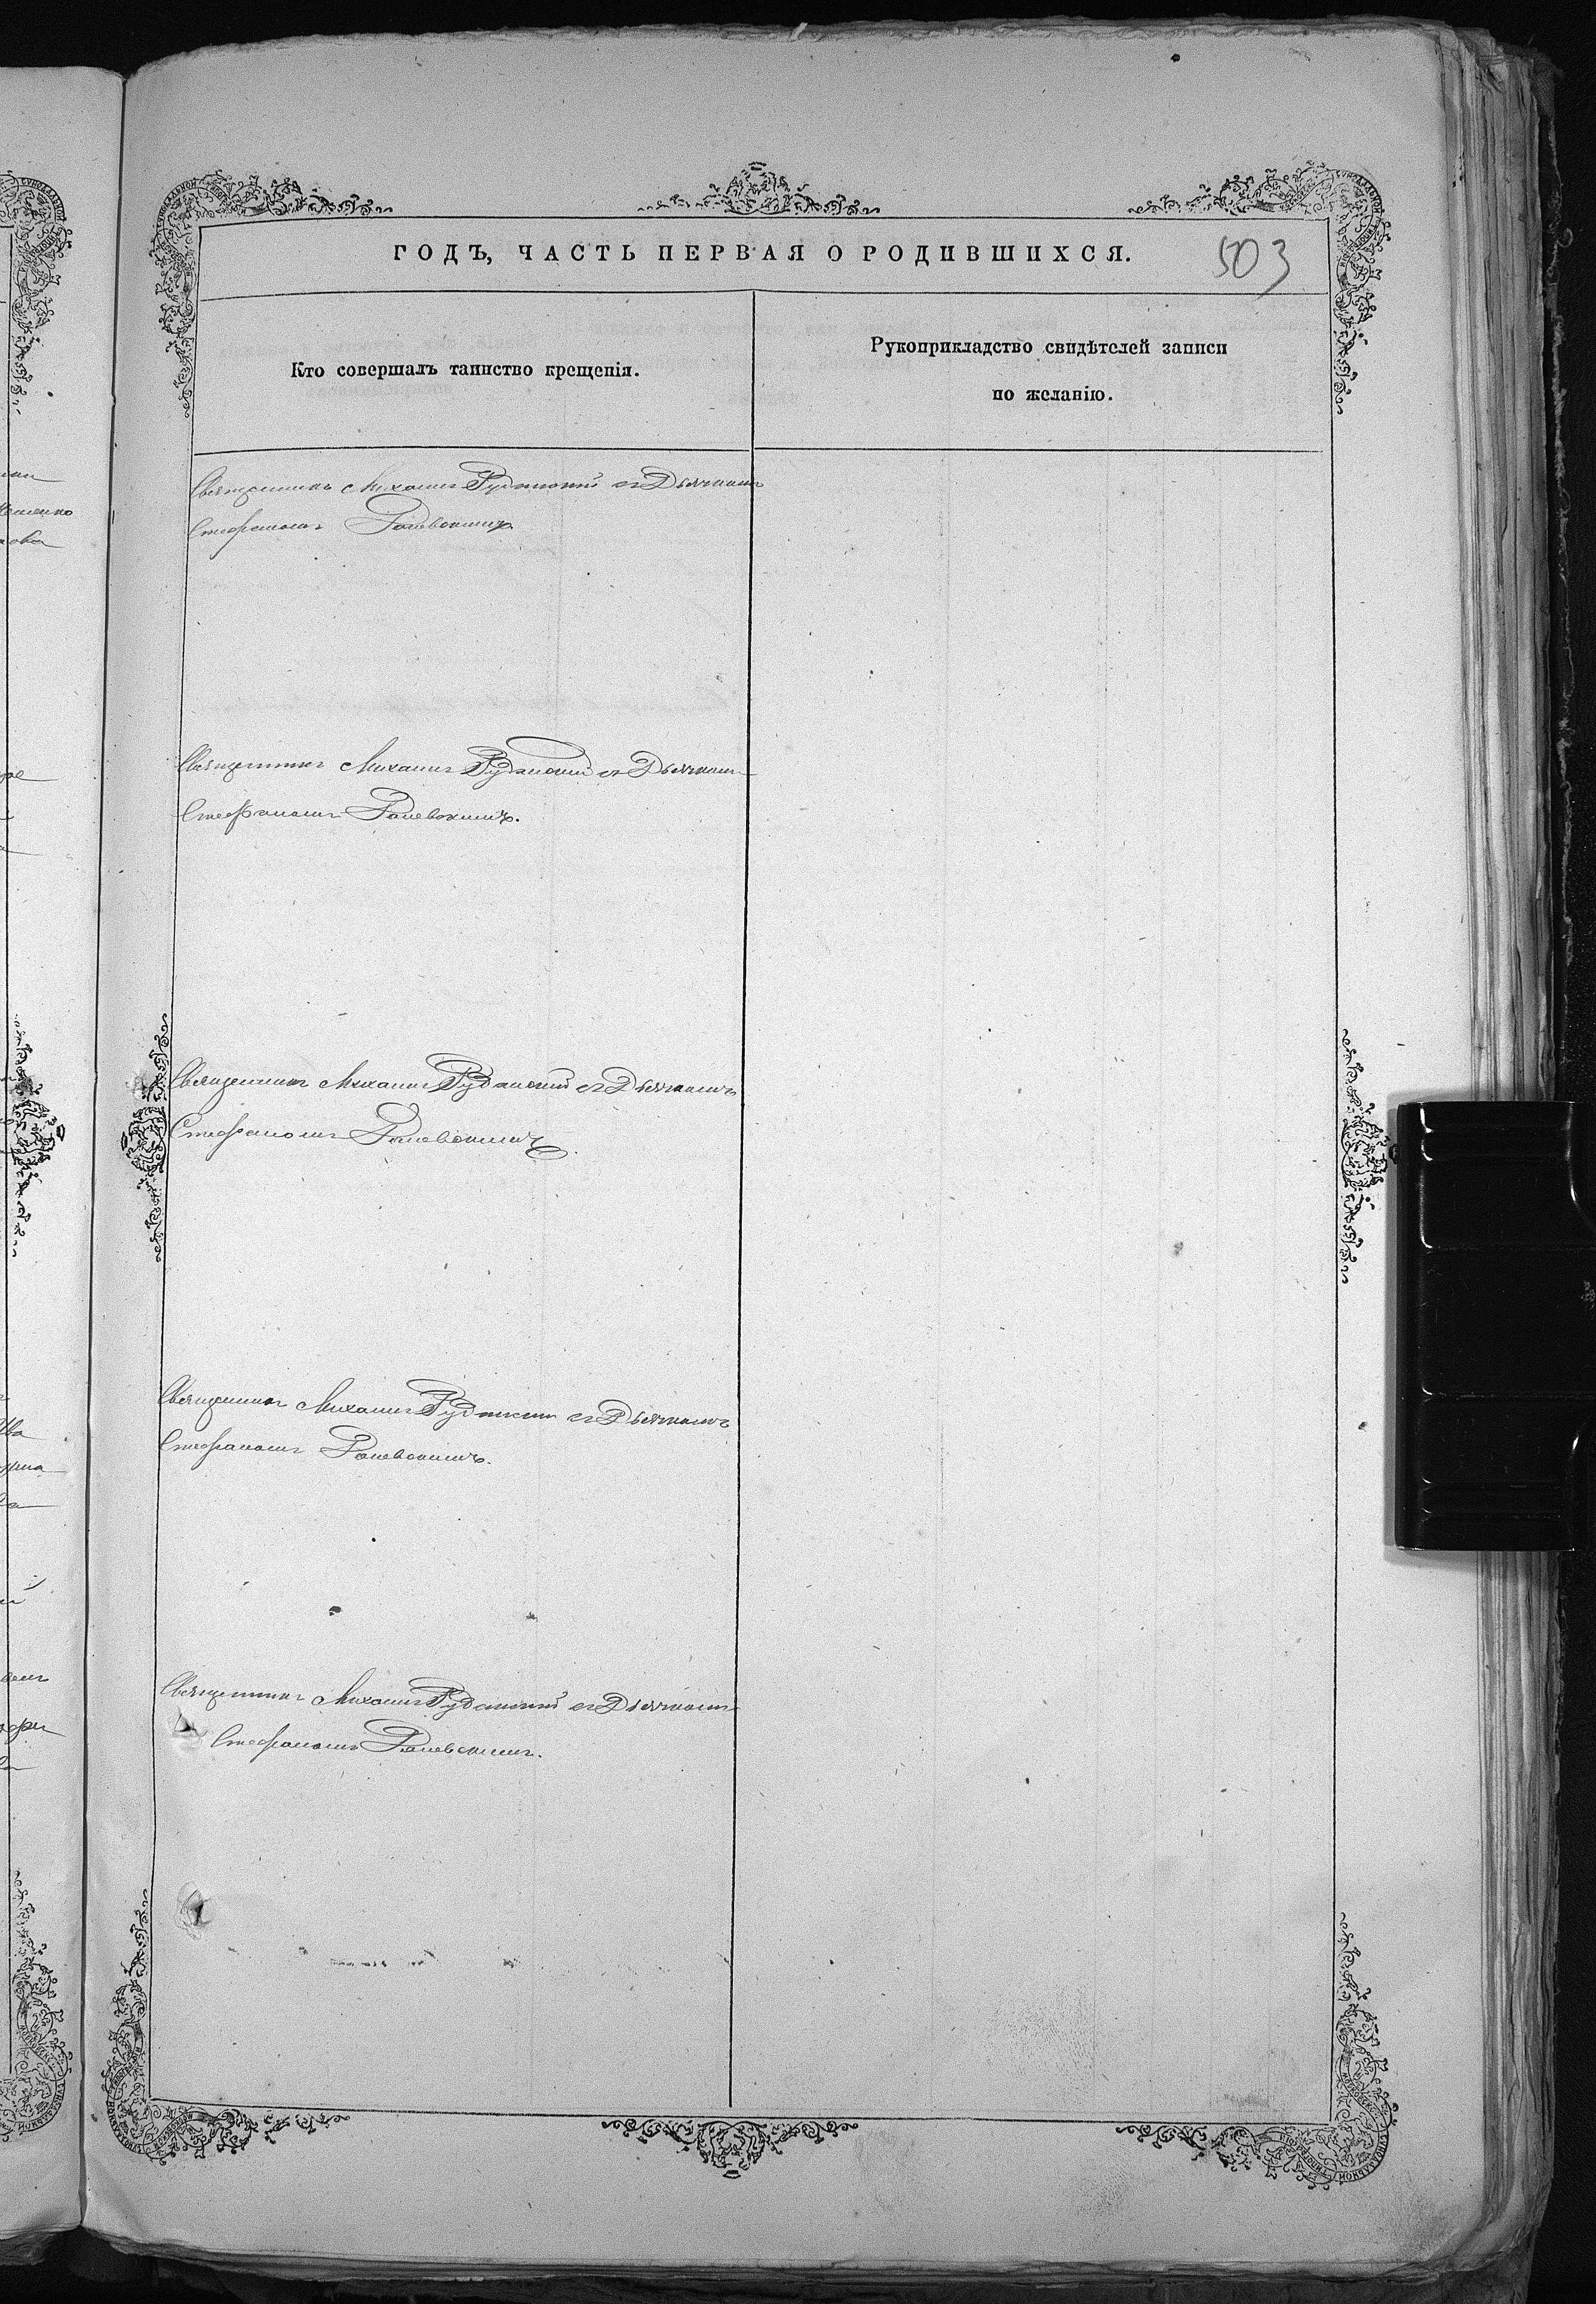 ГОДЪ, ЧАСТЬ ПЕРВАЯ О РОДИВШИХСЯ.
503
Кто совершалъ таинство крещенія.
Рукоприкладство свидѣтелей записи
по желанію.
Священникъ Михаилъ Руданскій съ Дьячкомъ
Стефаномъ Раневскимъ.
Священникъ Михаилъ Руданскій съ Дьячкомъ
Стефаномъ Раневскимъ.
Священникъ Михаилъ Руданскій съ Дьячкомъ
Стефаномъ Раневскимъ.
Священникъ Михаилъ Руданскій съ Дьячкомъ
Стефаномъ Раневскимъ.
Священникъ Михаилъ Руданскій съ Дьячкомъ
Стефаномъ Раневскимъ.